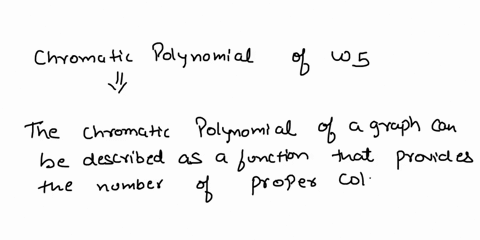 Chromatic Polynomial of W5
⇓
The chromatic Polynomial of a graph can
be described as a function that provides
the number of proper col.